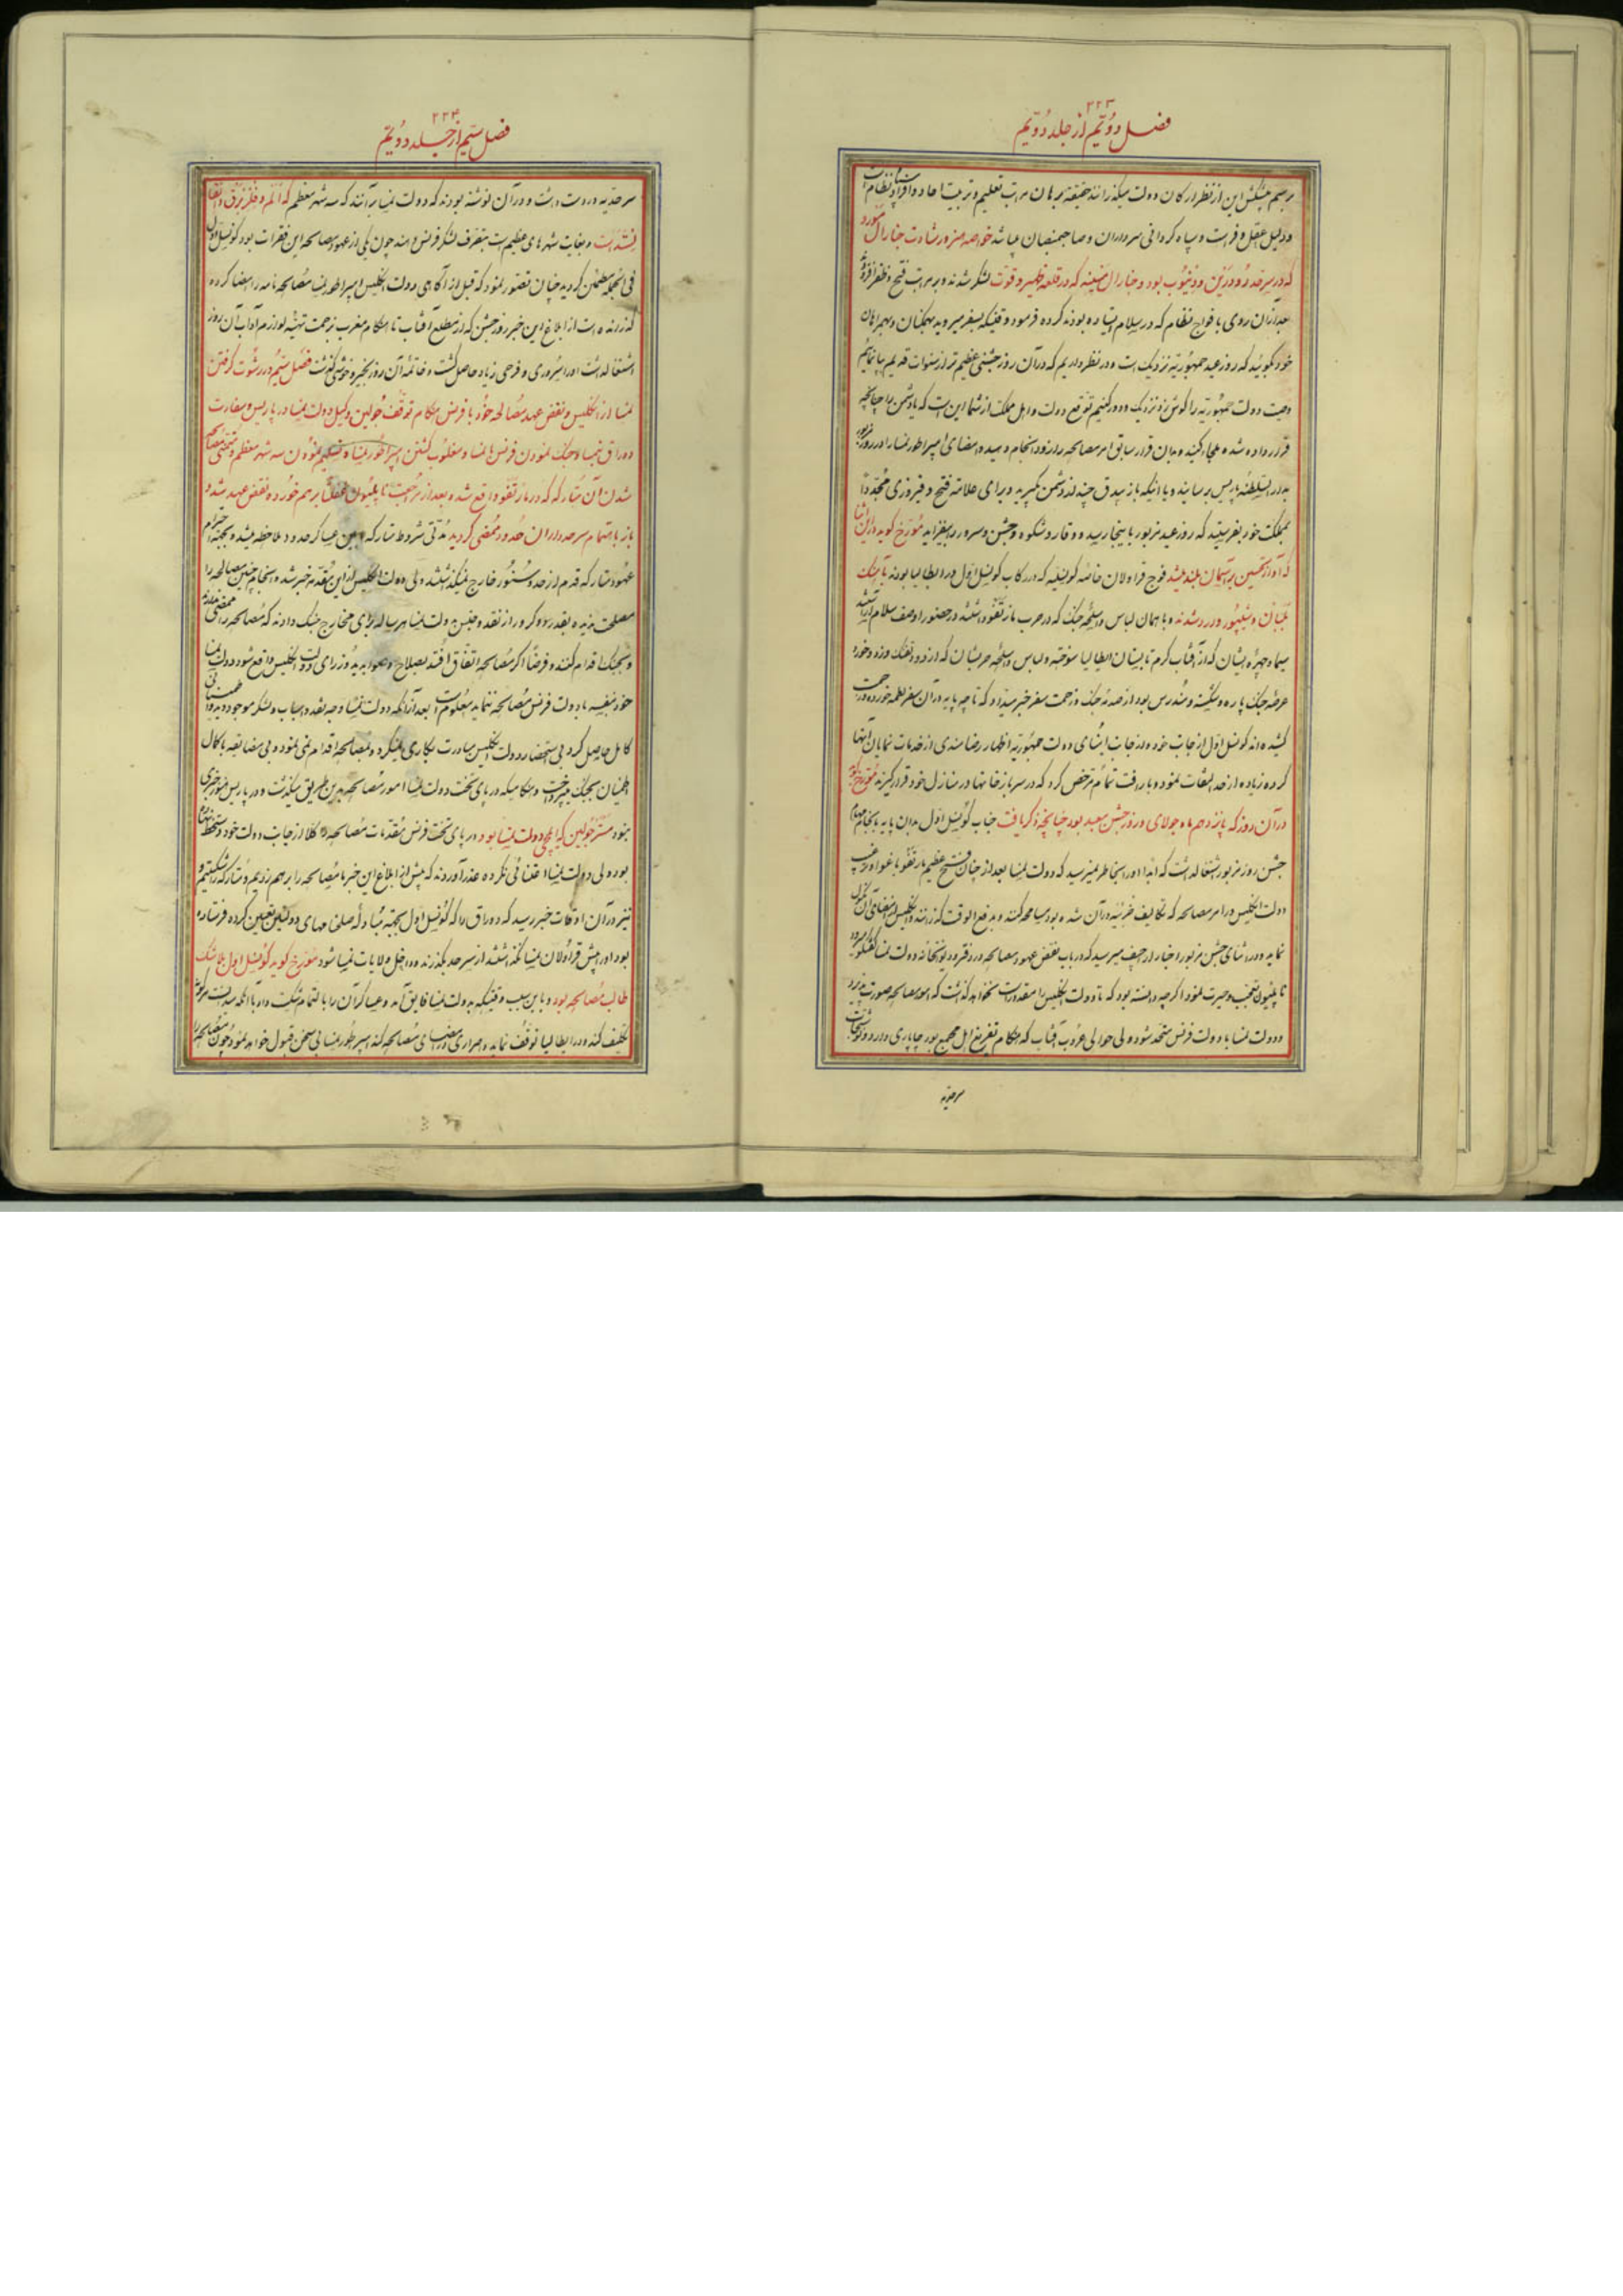 ۲۲۳
فصل دویّم از جلد دویّم
برسم پیشکش این از نظر ارکان دولت میگذرانند حقیقة برهان مراتب تعلیم و تربیت احاد و افراد نظام است
و دلیل عقل و فراست و سپاه کردانی سرداران و صاحبمنصبان میباشد خواصه هنر و رشادت جنارال
که در سرحد رود رَیْن و دینوب بود و جنارال که در قلعه و قوت لشکر شدند و بر مراتب فتح و ظفر افزود
بعد از آن روی با فوج نظام که در سلام ایستاده بودند کرده فرمود وقتیکه بسفر میروید بهمگنان و همراهان
خود بگوئید که روز عید جمهوریّه نزدیک است و در نظر داریم که در آن روز جشنی عظیم تر از سنوات قدیم برپا نمائیم
وصیت دولت جمهوریّه را گوش زد نزدیک و دور کنیم توقع دولت و اهل مملکت از شما این است که با دشمن ما چنانچه
قرار داده شده مجارا کنید و بدان قرار سابق امر مصالحه را زود انجام دهید و امضای امپراطور نمسا را در روز
بدار السلطنه پاریس برسانید و یا اینکه باز بیدق چند از دشمن بگیرید و برای علامت فتح و فیروزی مجدداً
بمملکت خود بفرستید که روز عید مزبور باینجا رسیده و وقار و شکوه و جشن و سرور بیفزاید مورّخ گوید در این اثنا
که آواز تحسین بر آسمان بلند میشد فوج قراولان خاصه کونسلیه که در رکاب کونسل اوّل در ایطالیا بودند با جنگ
بلبان و شیپور وارد شدند و با همان لباس و اسلحه جنگ که در حرب مارنقو داشتند در حضور او صف سلام آراستند
سیما و چهره ایشان که از آفتاب گرم تابستان ایطالیا سوخته و لباس و اسلحه حربشان که از دود تفنگ و زد و خورد
عرصه جنگ پاره و شکسته و مندرس بود از صدمه جنگ و زحمت سفر خبر میداد که تا چه پایه در آن سفر لطمه خورده و زحمت
کشیده اند کونسل اوّل از جانب خود و از جانب امنای دولت جمهوریّه اظهار رضامندی از خدمات نمایان آنها
کرده زیاده از حد التفات نمود و با رافت تمام مرخص کرد که در سربازخانها و در منازل خود قرار گیرند مورّخ گوید
در آن روز که پانزدهم ماه جولای و روز جشن سعید بود چنانچه ذکر یافت جناب کونسل اوّل بدان پایه بانجام مهام
جشن روز مزبور اشتغال داشت که ابداً او را بخاطر نمیرسید که دولت نمسا بعد از چنان فتح عظیم مارنقو باغوا و ترغیب
دولت انگلیس در امر مصالحه که تکالیف در آن شده بود مسامحه کنند و بدفع الوقت گذرانند و انگلیس
نماید و در اثنای جشن مزبور اخبار اراجیف میرسید که در باب نقض عهود مصالحه در دفتر و دیوانخانه دولت نمسا گفتگو میرود
ناپلیون تعجب و حیرت نمود اگرچه دانسته بود که تا دولت انگلیس را مقدور است نخواهد گذشت که امور مصالحه صورت پذیرد
و دولت نمسا با دولت فرنس متحد شود ولی حوالی غروب آفتاب که هنگام تفریغ اهل مجمع بود چاپاری وارد و نوشتجات
سرحدیه
۲۲۴
فصل سیم از جلد دویّم
سرحدیه در دست داشت و در آن نوشته بودند که دولت نمسا بر آنند که سه شهر معظم که اُلم و فلزبرق و انقا
لِسْتَدْ است و بغایت شهرهای عظیم است بتصرف لشکر فرنس دهند چون یکی از عهود مصالحه این فقرات بود کونسل اوّل
فی الجمله مطمئن گردید چنان تصور نمود که قبل از آگاهی دولت انگلیس امپراطور نمسا مصالحه نامه را امضا کرده
گذرانده است از ابلاغ این خبر روز جشن که از مطلع آفتاب تا هنگام مغرب بزحمت تهنیه لوازم آداب آن روز
اشتغال داشت او را سروری و فرحی زیاد حاصل گشت و خاتمه آن روز بخیر و خوشی گذشت فصل سیّم در رشوت گرفتن
نمسا از انگلیس و نقض عهد مصالحه خود با فرنس هنگام توقف جولین وکیل دولت نمسا در پاریس و سفارت
دوراق بنمسا و جنک نمودن فرنس با نمسا و مغلوب گشتن امپراطور نمسا و تسلیم نمودن سه شهر معظم و مقتضی مصالحه
شدن آن متارکه که در مارنقو واقع شده بعد از مراجعت ناپلیون بر هم خورده نقض عهد شد و
باز باهتمام سرحدداران حدود ممضی گردید مدّتی شروط متارکه مابین عساکر حدود ملاحظه میشد و بجهة احترام
عهود متارکه قدم از حد و سنور خارج نمیگذاشتند ولی دولت انگلیس از این مقدمه خبر شد و انجام چنین مصالحه را
مصلحت ندید و بقدر دو کرور از نقد و جنس بدولت نمسا هر ساله برای مخارج جنک دادند که مصالحه را ممضی ندارد
و بجنک اقدام کنند و فرضاً اگر مصالحه اتفاق افتد بصلاح و صوابدید وزرای دولت انگلیس واقع شود دولت نمسا
خود بنفسه با دولت فرنس مصالحه ننماید معلوم است بعد از آنکه دولت نمسا وجه نقد و اسباب و لشکر موجود دید و اطمینانی
کامل حاصل کرد بی استحضار دولت انگلیس مبادرت بکاری نمیکرد و بمصالحه اقدام نمی نمود و بی مضایقه با کمال
اطمینان بجنک میپرداخت و هنگامیکه در پای تخت دولت نمسا امور مصالحه بدین طریق میگذشت و در پاریس هنوز خبری
نبود مستر جولین که ایلچی دولت نمسا بود در پای تخت فرنس مقدمات مصالحه را کلاً از جانب دولت خود دستخط نهاده
بود ولی دولت نمسا اعتنائی نکرده عذر آوردند که پیش از ابلاغ این خبر ما مصالحه را بر هم زدیم و متارکه را شکستیم و
نیز در آن اوقات خبر رسید که دوراق را که کونسل اوّل بجهة مبادله صلح نامهای دولتین تعیین کرده فرستاده
بود او را پیش قراولان نمسا نگذاشتند از سرحد بگذرند و داخل ولایات نمسا شود مورّخ گوید کونسل اوّل بلا شک
طالب مصالحه بود و باین سبب وقتیکه بدولت نمسا فایق آمد و عساکر آن را بالتمام شکست داد با آنکه میدانست هرگونه
تکلیف کند و در ایطالیا توقف نماید و اصراری در امضای مصالحه کند امپراطور نمسا بی سخن قبول خواهد نمود چون مصالحه را